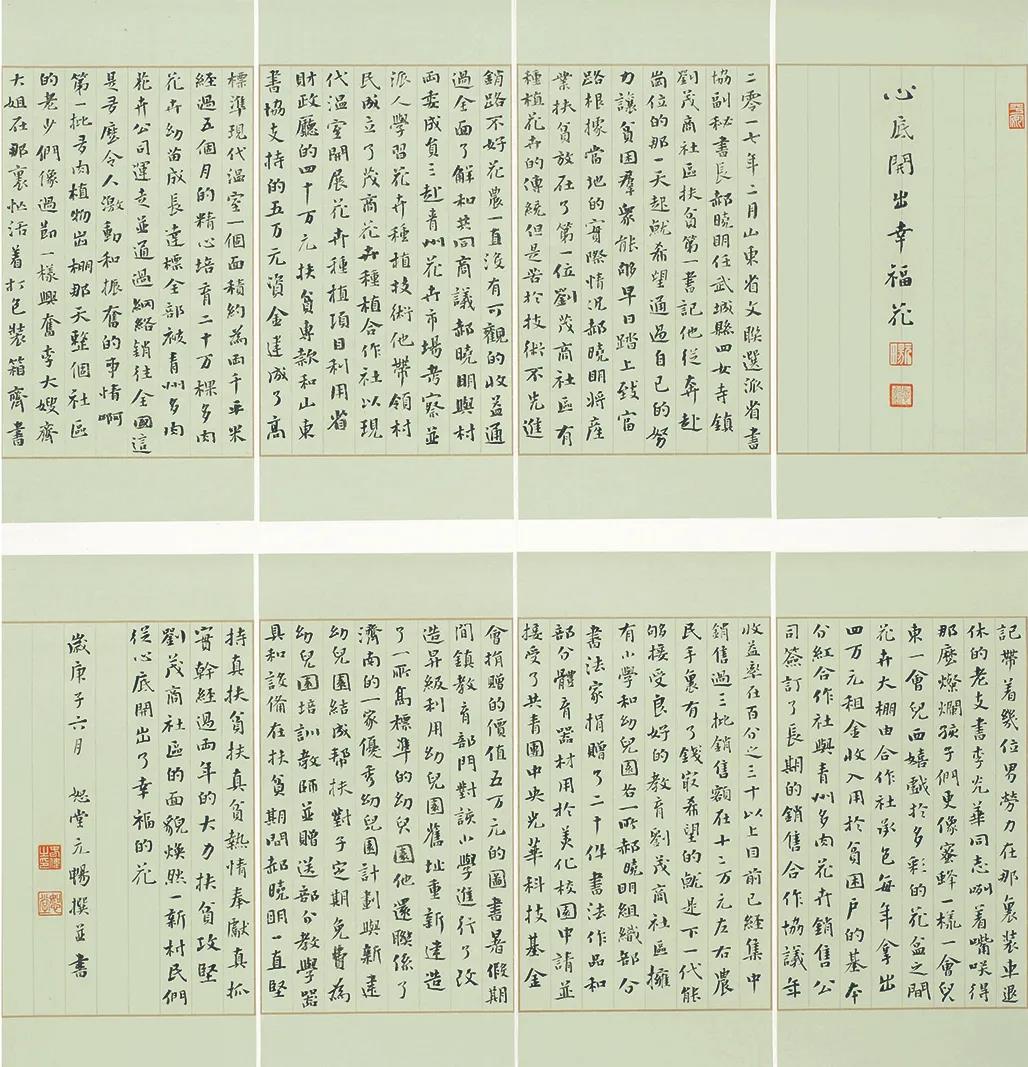 心底開出幸福花
二零一七年二月山東省文聯選派省書
協副秘書長郝曉明任武城縣四女寺鎮
劉茂商社區扶貧第一書記他從奔赴
崗位的那一天起就希望通過自己的努
力讓貧困羣衆能夠早日踏上致富
路根據當地的實際情況郝曉明將産
業扶貧放在了第一位劉茂商社區有
種植花卉的傳統但是苦於技術不先進
銷路不好花農一直沒有可觀的收益通
過全面了解和共同商議郝曉明與村
兩委成員三赴青州花卉市場考察並
派人學習花卉種植技術他帶領村
民成立了茂商花卉種植合作社以現
代温室開展花卉種植項目利用省
財政廳的四十万元扶貧專款和山東
書協支持的五万元資金建成了高
標準現代温室一個面積約為兩千平米
經過五個月的精心培育二十万棵多肉
花卉幼苗成長達標全部被青州多肉
花卉公司運走並通過網絡銷往全國這
是多麼令人激動和振奮的事情啊
第一批多肉植物出棚那天整個社區
的老少們像過節一樣興奮李大嫂齊
大姐在那裏忙活着打包裝箱齊書
記帶着幾位男勞力在那裏裝車退
休的老支書李光華同志咧着嘴咲得
那麼燦爛孩子們更像蜜蜂一樣一會兒
東一會兒西嬉戲於多彩的花盆之間
花卉大棚由合作社承包每年拿出
四万元租金收入用於貧困戶的基本
分紅合作社與青州多肉花卉銷售公
司簽訂了長期的銷售合作協議年
收益率在百分之三十以上目前已經集中
銷售過三批銷售額在十二万元左右農
民手裏有了錢最希望的就是下一代能
够接受良好的教育劉茂商社區擁
有小學和幼兒園各一所郝曉明組織部分
書法家捐贈了二十件書法作品和
部分體育器材用於美化校園申請並
接受了共青團中央光華科技基金
會捐贈的價值五万元的圖書暑假期
間鎮教育部門對該小學進行了改
造昇級利用幼兒園舊址重新建造
了一所高標準的幼兒園他還聯係了
濟南的一家優秀幼兒園計劃與新建
幼兒園結成幫扶對子定期免費為
幼兒園培訓教師並贈送部分教學器
具和設備在扶貧期間郝曉明一直堅
持真扶貧扶真貧熱情奉獻真抓
實幹經過兩年的大力扶貧攻堅
劉茂商社區的面貌煥然一新村民們
從心底開出了幸福的花
歲庚子六月 恕堂元暢撰並書